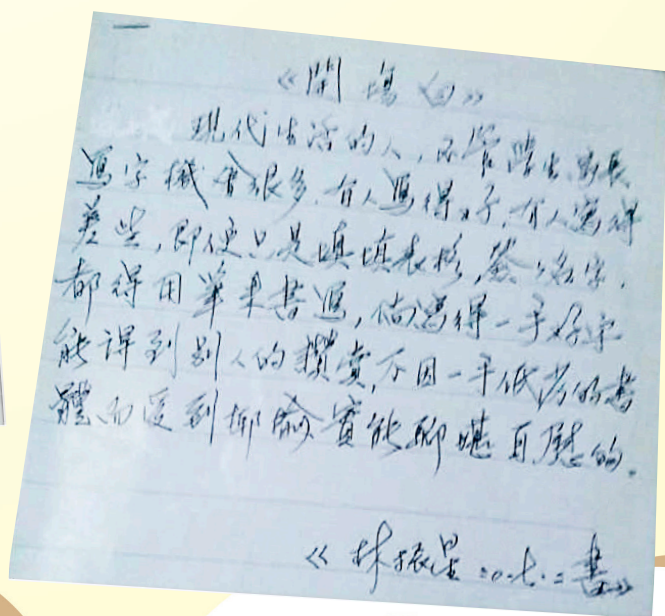 一
《開場白》
現代生活的人,不管學生、家長
寫字機會很多,有人寫得好,有人寫得
差些,即使只是填填表格,簽簽名字,
都得用筆來書寫,倘寫得一手好字
能得到別人的讚賞,不因一手低劣的書
體而受到揶揄實能聊堪自慰的。
《林振星二〇七·二書》